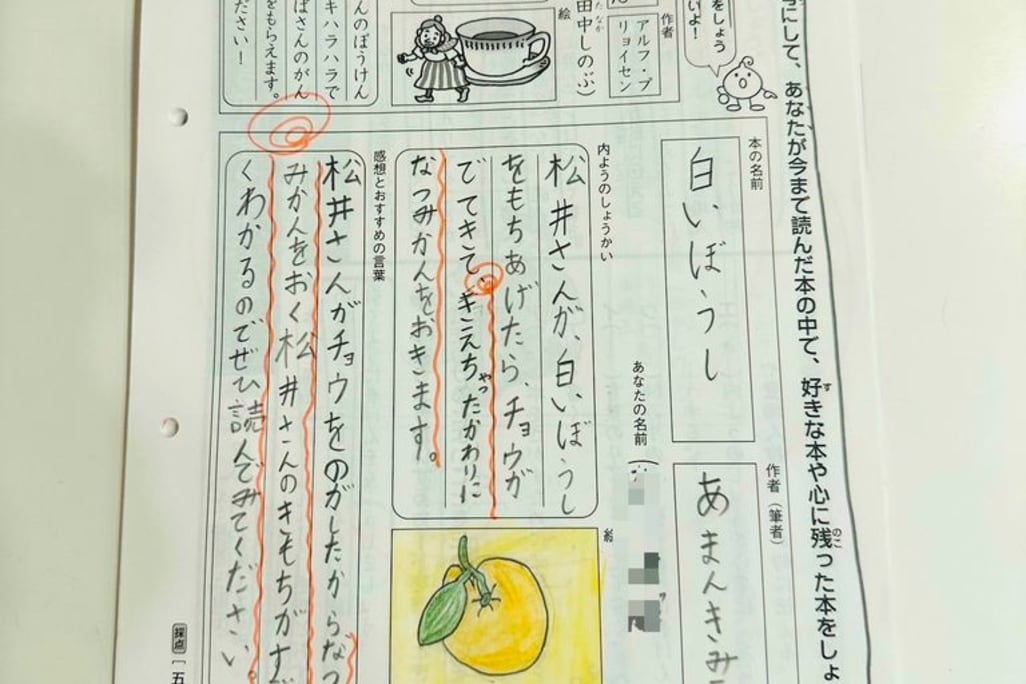 にして、あなたが今まで読んだ本の中で、好きな本や心に残った本をしょ
す
のこ
をしょう
いよ！
作者
アルフ・プ
リョイセン
絵
田中しのぶ）
たなか
んのぼうけん
キハラハラで
ばさんのがん
をもらえます。
ださい！
本の名前
白いぼうし
作者（筆者）
あまんきみ
あなたの名前（
内ようのしょうかい
松井さんが、白いぼうし
をもちあげたら、チョウが
でてきて、きえちゃったかわりに
なつみかんをおきます。
絵
感想とおすすめの言葉
松井さんがチョウをのがしたからなつ
みかんをおく松井さんのきもちがす
くわかるのでぜひ読んでみてください。
採点
［五